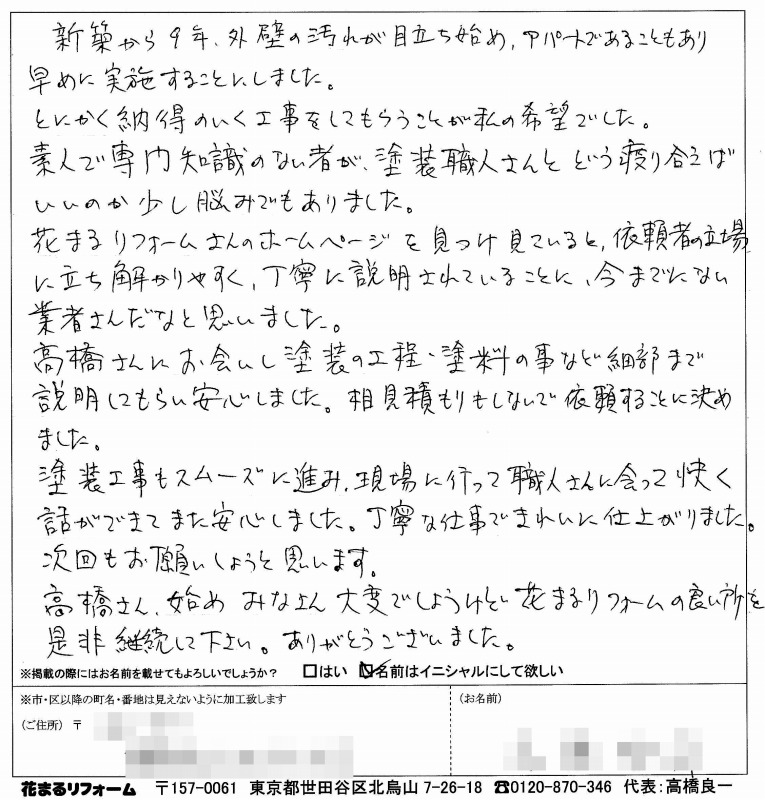 新築から9年、外壁の汚れが目立ち始め、アパートであることもあり
早めに実施することにしました。
とにかく納得のいく工事をしてもらうことが私の希望でした。
素人で専門知識のない者が、塗装職人さんとどう渡り合えば
いいのか少し悩みでもありました。
花まるリフォームさんのホームページを見つけ見ていると、依頼者の立場
に立ち解かりやすく、丁寧に説明されていることに、今までにない
業者さんだなと思いました。
高橋さんにお会いし塗装の工程・塗料の事など細部まで
説明してもらい安心しました。相見積もりもしないで依頼することに決め
ました。
塗装工事もスムーズに進み、現場に行って職人さんに会って快く
話ができてまた安心しました。丁寧な仕事できれいに仕上がりました。
次回もお願いしようと思います。
高橋さん、始めみなさん大変でしょうけど花まるリフォームの良い所を
是非継続して下さい。ありがとうございました。
※掲載の際にはお名前を載せてもよろしいでしょうか? □はい ☑名前はイニシャルにして欲しい
※市・区以降の町名・番地は見えないように加工致します
(ご住所) 〒
(お名前)
花まるリフォーム 〒157-0061 東京都世田谷区北烏山 7-26-18 ☎0120-870-346 代表:高橋良一